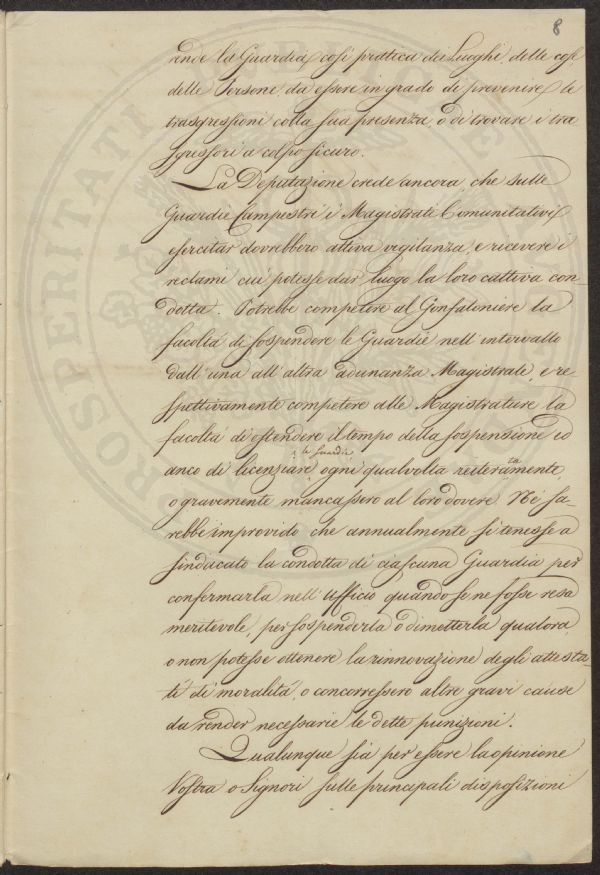 8
rende la Guardia, così prattica dei Luoghi delle cose
delle Persone da essere in grado di prevenire le
trasgressioni colla sua presenza, o di trovare i tra
sgressori a colpo sicuro.
La Deputazione crede ancora, che sulle
Guardie Campestri i Magistrati Comunitativi
esercitar dovrebbero attiva vigilanza, e ricevere i
reclami cui potesse dar luogo la loro cattiva con-
dotta. Potrebbe competere al Gonfaloniere la
facoltà di sospendere le Guardie nell'intervallo
dall'una all'altra adunanza Magistrale, e re
spettivamente competere alle Magistrature la
facoltà di estendere il tempo della sospensione ed
le Guardie
anco di licenziare ogni qualvolta reiteratamente,
o gravemente mancassero al loro dovere. Nè sa-
rebbe improvido che annualmente si tenesse a
sindacato la condotta di ciascuna Guardia per
confermarla nell'Ufficio quando se ne fosse resa
meritevole, per sospenderla o dimetterla qualora,
o non potesse ottenere la rinnovazione degli attesta-
ti di moralità, o concorressero altre gravi cause
da render necessarie le dette punizioni.
Qualunque sia per essere la opinione
Vostra o Signori sulle principali disposizioni
PROSPERITATI